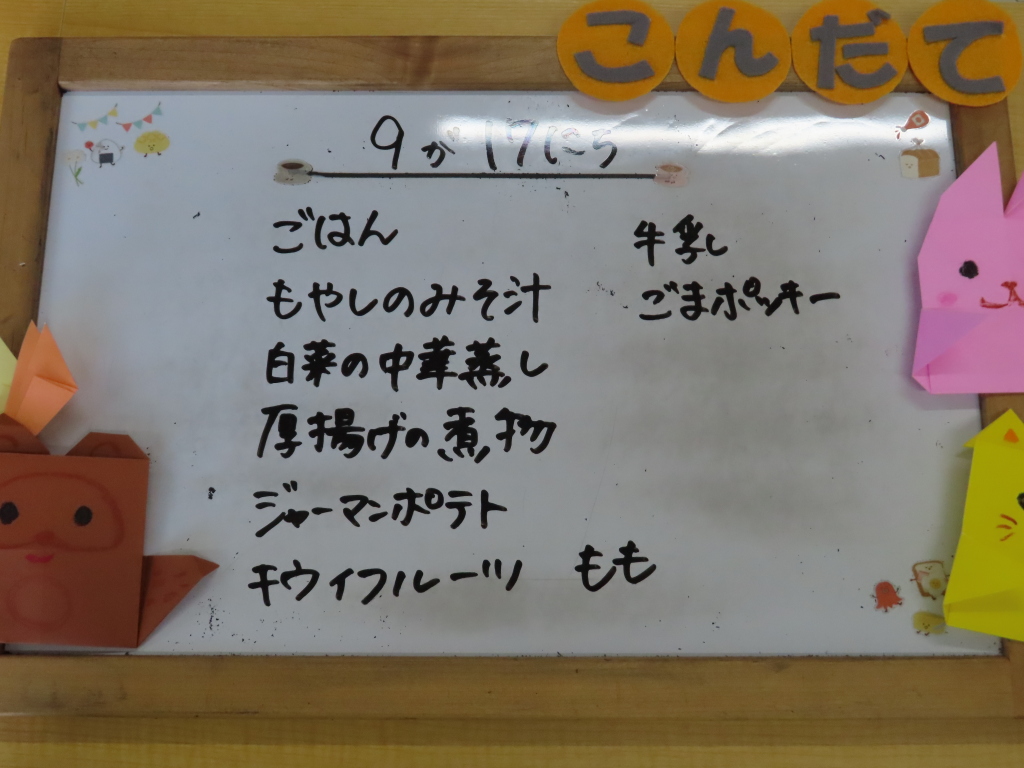 こんだて
9が17にち
ごはん
もやしのみそ汁
白菜の中華蒸し
厚揚げの煮物
ジャーマンポテト
キウイフルーツ もも
牛乳し
ごまポッキー